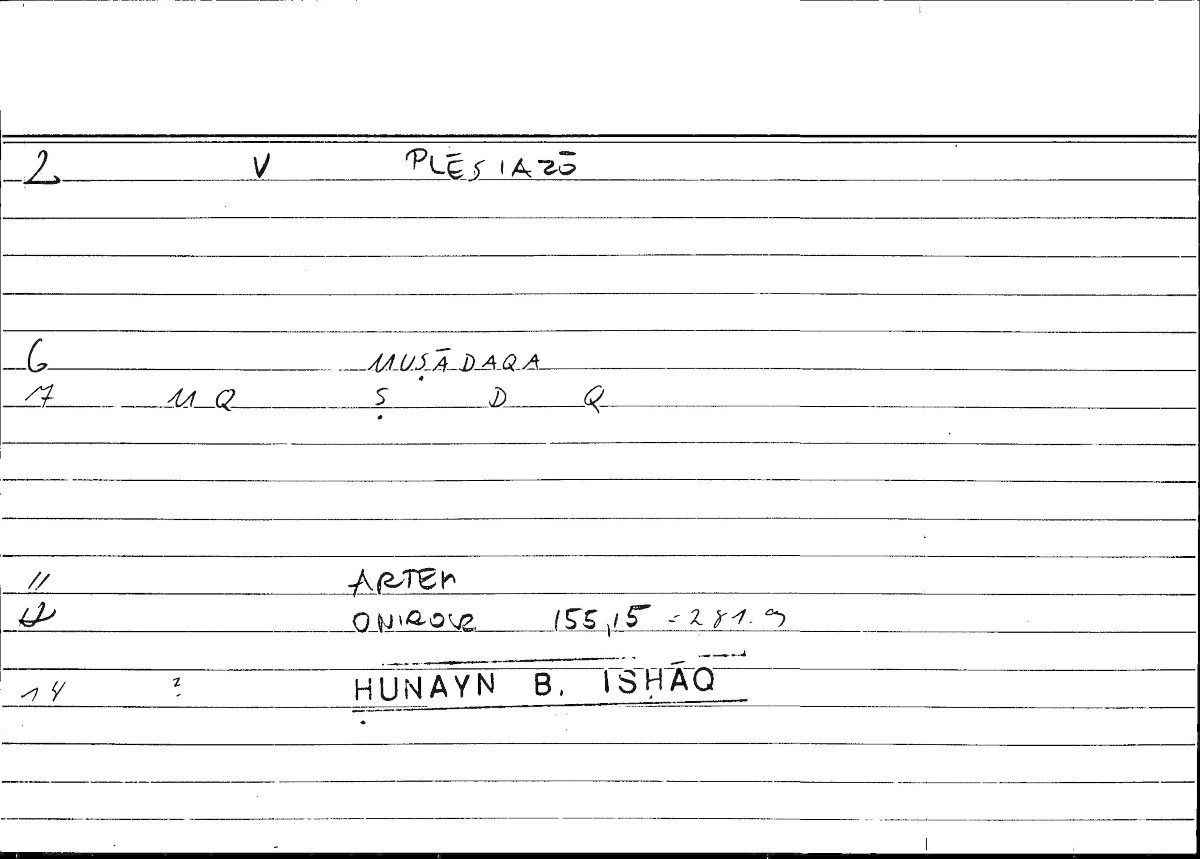 2 V PLĒSIAZŌ
6 MUṢĀDAQA
7 MQ Ṣ D Q
11 ARTEM
12 ONIROCR 155,15 = 281.9
14 ? ḤUNAYN B. ISḤĀQ